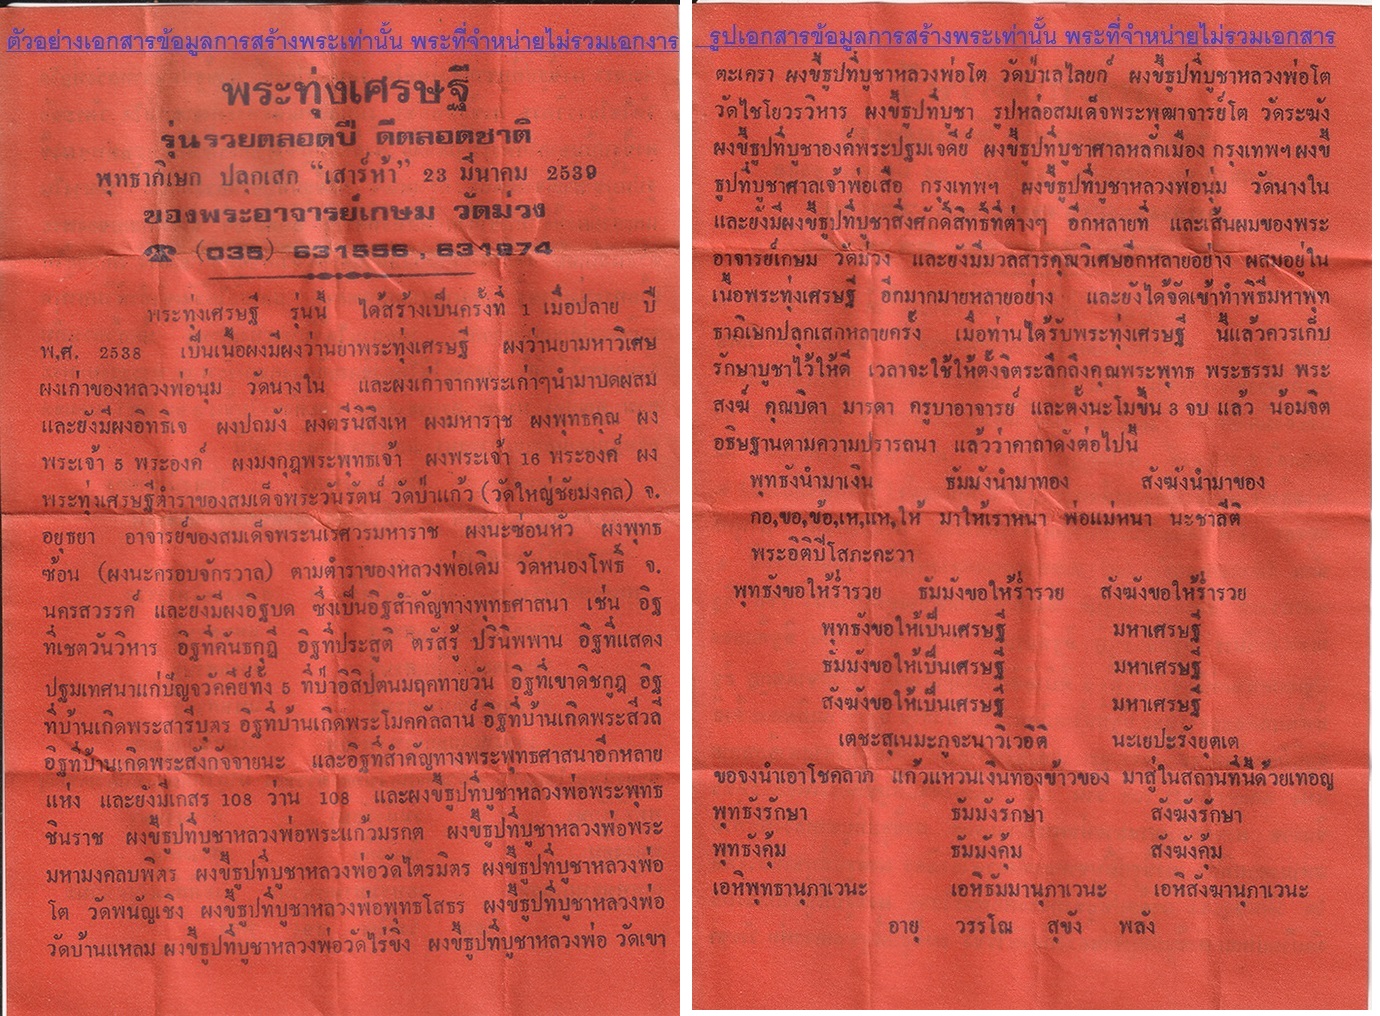 ตัวอย่างเอกสารข้อมูลการสร้างพระเท่านั้น พระที่จำหน่ายไม่รวมเอกงาร
พระทุ่งเศรษฐี
รุ่นรวยตลอดปี ดีตลอดชาติ
พุทธาภิเษก ปลุกเสก "เสาร์ห้า" 23 มีนาคม 2539
ของพระอาจารย์เกษม วัดม่วง
☎ (035) 631556 , 631974
พระทุ่งเศรษฐี รุ่นนี้ ได้สร้างเป็นครั้งที่ 1 เมื่อปลาย ปี
พ.ศ. 2538 เป็นเนื้อผงมีผงว่านยาพระทุ่งเศรษฐี ผงว่านยามหาวิเศษ
ผงเก่าของหลวงพ่อนุ่ม วัดนางใน และผงเก่าจากพระเก่าๆนำมาบดผสม
และยังมีผงอิทธิเจ ผงปถมัง ผงตรีนิสิงเห ผงมหาราช ผงพุทธคุณ ผง
พระเจ้า 5 พระองค์ ผงมงกุฎพระพุทธเจ้า ผงพระเจ้า 16 พระองค์ ผง
พระทุ่งเศรษฐีตำราของสมเด็จพระวันรัตน์ วัดป่าแก้ว (วัดใหญ่ชัยมงคล) จ.
อยุธยา อาจารย์ของสมเด็จพระนเรศวรมหาราช ผงนะซ่อนหัว ผงพุทธ
ซ้อน (ผงนะครอบจักรวาล) ตามตำราของหลวงพ่อเดิม วัดหนองโพธิ์ จ.
นครสวรรค์ และยังมีผงอิฐบด ซึ่งเป็นอิฐสำคัญทางพุทธศาสนา เช่น อิฐ
ที่เชตวันวิหาร อิฐที่คันธกุฎี อิฐที่ประสูติ ตรัสรู้ ปรินิพพาน อิฐที่แสดง
ปฐมเทศนาแก่ปัญจวัคคีย์ทั้ง 5 ที่ป่าอิสิปตนมฤคทายวัน อิฐที่เขาดิชกูฎ อิฐ
ที่บ้านเกิดพระสารีบุตร อิฐที่บ้านเกิดพระโมคคัลลาน์ อิฐที่บ้านเกิดพระสีวลี
อิฐที่บ้านเกิดพระสังกัจจายนะ และอิฐที่สำคัญทางพระพุทธศาสนาอีกหลาย
แห่ง และยังมีเกสร 108 ว่าน 108 และผงขี้ธูปที่บูชาหลวงพ่อพระพุทธ
ชินราช ผงขี้ธูปที่บูชาหลวงพ่อพระแก้วมรกต ผงขี้ธูปที่บูชาหลวงพ่อพระ
มหามงคลบพิตร ผงขี้ธูปที่บูชาหลวงพ่อวัดไตรมิตร ผงขี้ธูปที่บูชาหลวงพ่อ
โต วัดพนัญเชิง ผงขี้ธูปที่บูชาหลวงพ่อพุทธโสธร ผงขี้ธูปที่บูชาหลวงพ่อ
วัดบ้านแหลม ผงขี้ธูปที่บูชาหลวงพ่อวัดไร่ขิง ผงขี้ธูปที่บูชาหลวงพ่อ วัดเขา
รูปเอกสารข้อมูลการสร้างพระเท่านั้น พระที่จำหน่ายไม่รวมเอกสาร
ตะเครา ผงขี้ธูปที่บูชาหลวงพ่อโต วัดป่าเลไลยก์ ผงขี้ธูปที่บูชาหลวงพ่อโต
วัดไชโยวรวิหาร ผงขี้ธูปที่บูชา รูปหล่อสมเด็จพระพุฒาจารย์โต วัดระฆัง
ผงขี้ธูปที่บูชาองค์พระปฐมเจดีย์ ผงขี้ธูปที่บูชาศาลหลักเมือง กรุงเทพฯ ผงขี้
ธูปที่บูชาศาลเจ้าพ่อเสือ กรุงเทพฯ ผงขี้ธูปที่บูชาหลวงพ่อนุ่ม วัดนางใน
และยังมีผงขี้ธูปที่บูชาสิ่งศักดิ์สิทธิ์ที่ต่างๆ อีกหลายที่ และเส้นผมของพระ
อาจารย์เกษม วัดม่วง และยังมีมวลสารคุณวิเศษอีกหลายอย่าง ผสมอยู่ใน
เนื้อพระทุ่งเศรษฐี อีกมากมายหลายอย่าง และยังได้จัดเข้าทำพิธีมหาพุท
ธาภิเษกปลุกเสกหลายครั้ง เมื่อท่านได้รับพระทุ่งเศรษฐี นี้แล้วควรเก็บ
รักษาบูชาไว้ให้ดี เวลาจะใช้ให้ตั้งจิตระลึกถึงคุณพระพุทธ พระธรรม พระ
สงฆ์ คุณบิดา มารดา ครูบาอาจารย์ และตั้งนะโมขึ้น 3 จบ แล้ว น้อมจิต
อธิษฐานตามความปรารถนา แล้วว่าคาถาดังต่อไปนี้
พุทธังนำมาเงิน ธัมมังนำมาทอง สังฆังนำมาของ
กอ,ขอ,ข้อ,เห,แห,ให้ มาให้เราหนา พ่อแม่หนา นะชาลีติ
พระอิติปิโสภะคะวา
พุทธังขอให้ร่ำรวย ธัมมังขอให้ร่ำรวย สังฆังขอให้ร่ำรวย
พุทธังขอให้เป็นเศรษฐี มหาเศรษฐี
ธัมมังขอให้เป็นเศรษฐี มหาเศรษฐี
สังฆังขอให้เป็นเศรษฐี มหาเศรษฐี
เตชะสุเนมะภูจะนาวิเวอิติ นะเยปะรังยุตเต
ขอจงนำเอาโชคลาภ แก้วแหวนเงินทองข้าวของ มาสู่ในสถานที่นี้ด้วยเทอญ
พุทธังรักษา ธัมมังรักษา สังฆังรักษา
พุทธังคุ้ม ธัมมังคุ้ม สังฆังคุ้ม
เอหิพุทธานุภาเวนะ เอหิธัมมานุภาเวนะ เอหิสังฆานุภาเวนะ
อายุ วรรโณ สุขัง พลัง